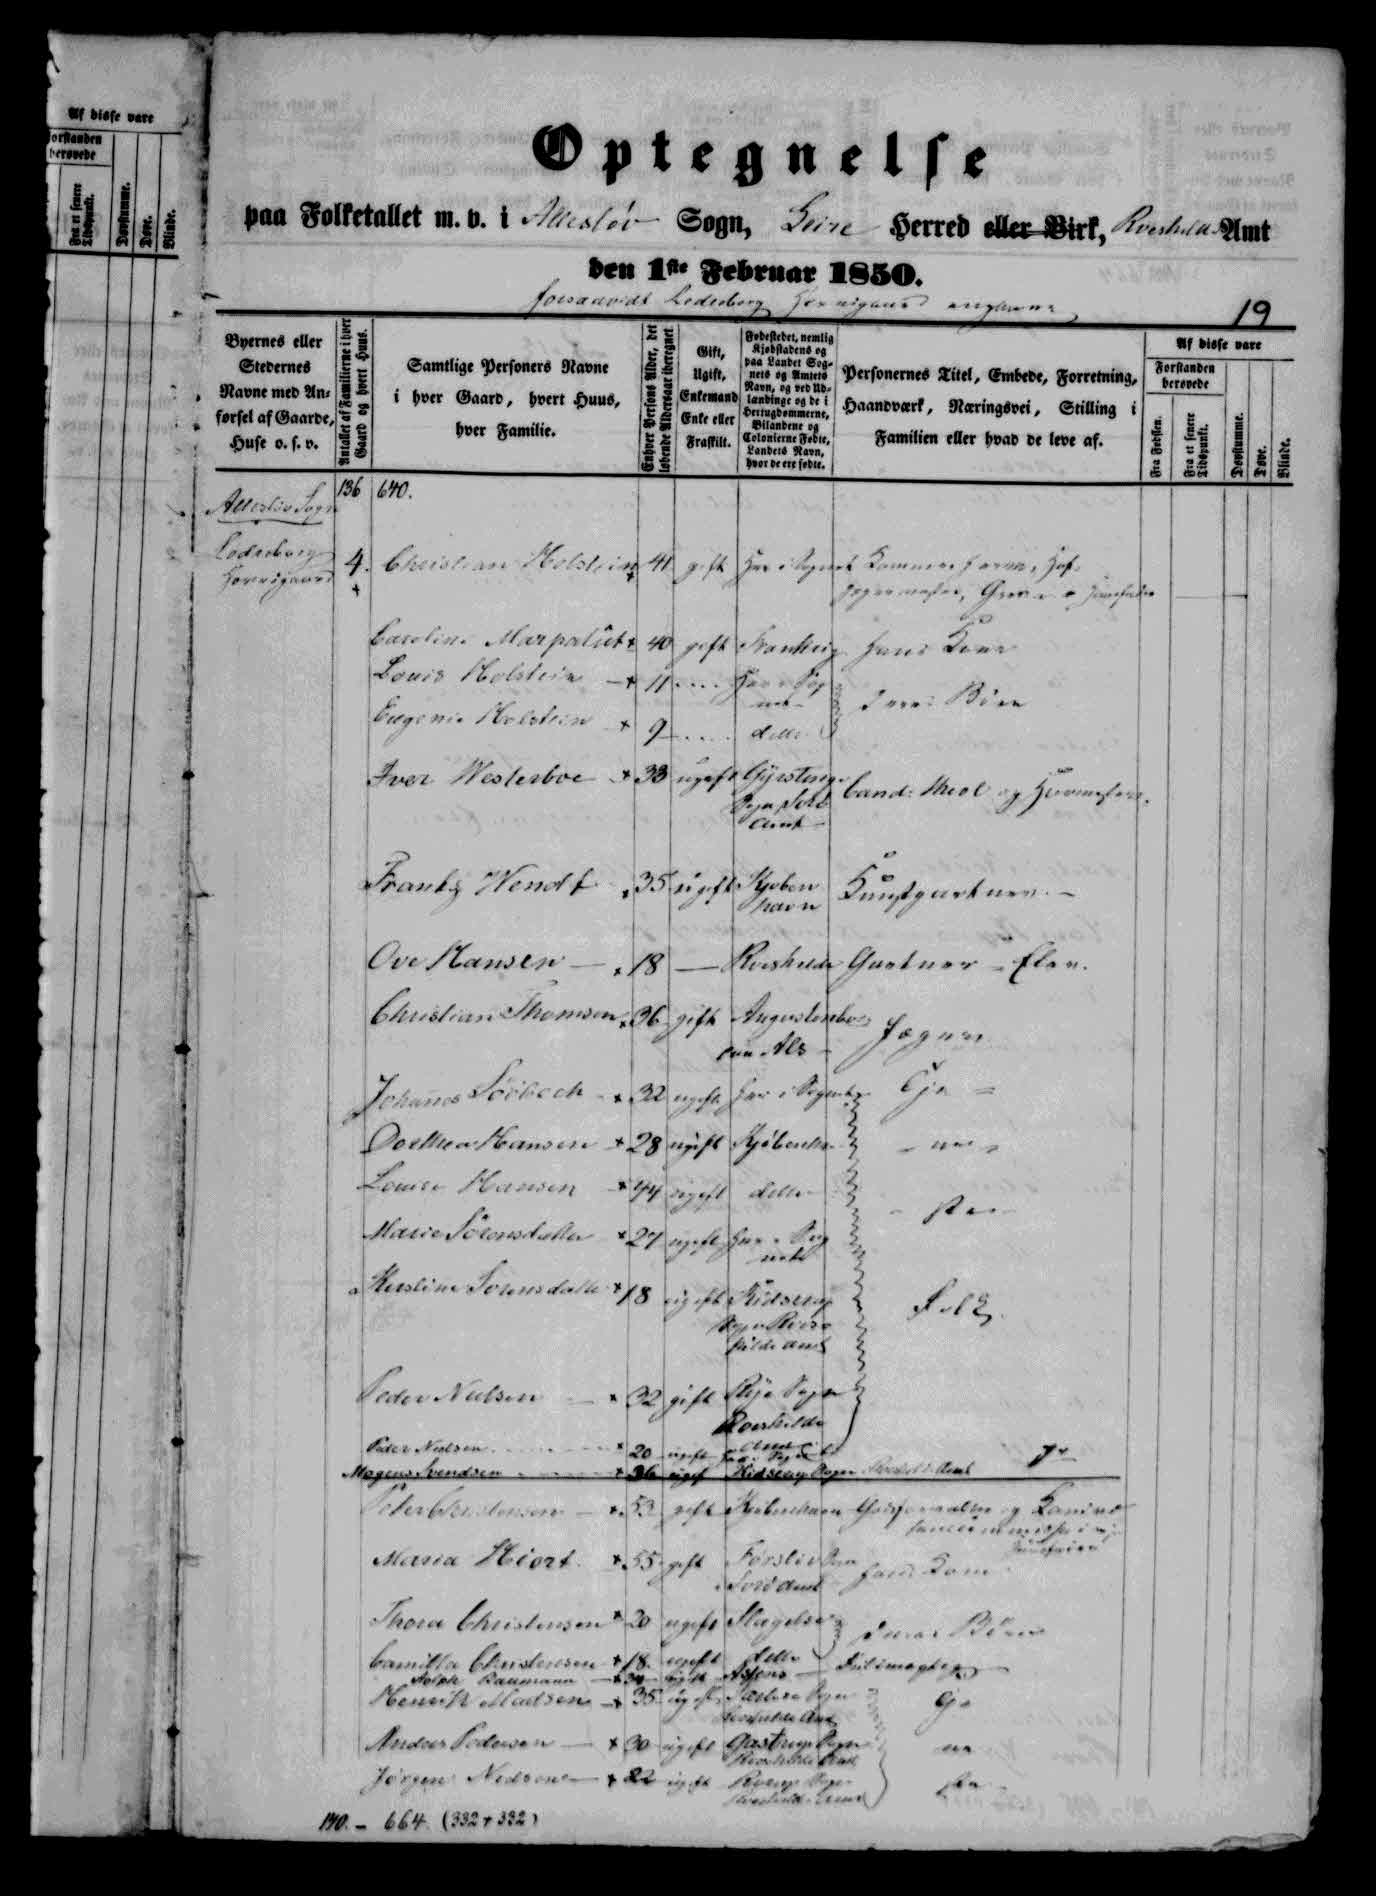 Af disse vare
Forstanden
berøvede
Fra et senere Tidspunkt.
Døvstumme.
Døve.
Blinde.
Optegnelse
paa Folketallet m. v. i Allesløv Sogn, Leire Herred eller Birk, Roeskilde Amt
den 1ste Februar 1850.
forsaavidt Ledreborg Herregaard angaaer
19
Byernes eller Stedernes Navne med Anførsel af Gaarde, Huse o. s. v.
Antallet af Familierne i hver Gaard og hvert Huus.
Samtlige Personers Navne i hver Gaard, hvert Huus, hver Familie.
Enhver Persons Alder, det løbende Aldersaar iberegnet
Gift, Ugift, Enkemand Enke eller Fraskilt.
Fødestedet, nemlig Kjøbstadens og paa Landet Sognets og Amtets Navn, og ved Udlændinge og de i Hertugdømmerne, Bilandene og Colonierne Fødte, Landets Navn, hvor de ere fødte.
Personernes Titel, Embede, Forretning, Haandværk, Næringsvei, Stilling i Familien eller hvad de leve af.
Af disse vare
Forstanden berøvede
Fra Fødslen.
Fra et senere Tidspunkt.
Døvstumme.
Døve.
Blinde.
136 640.
Allesløv Sogn
Ledreborg Herregaard 4. Christian Holstein 41 gift Her i Sognet Kammerherre, Hofjægermester, Greve Huusfader
Caroline 40 gift Frankrig hans Kone
Louis Holstein 11 .... Her i Sognet
Eugenie Holstein 9 .... ditto deres Børn
Iver Westerboe 33 ugift Gyrstinge Sogn Sorø Amt Cand: theol og Huuslærer
Frantz Wendt 35 ugift Kjøbenhavn Kunstgartner
Ove Hansen 18 — Roeskilde Gartner Elev.
Christian Thomsen 36 gift Augustenborg paa Als Jæger
Johanes 32 ugift her i Sognet Tje-
Dorthea Hansen 28 ugift Kjøbenhvn - ne -
Louise Hansen 44 ugift ditto - ste -
Marie Sørensdatter 27 ugift her i Sognet
Kirstine Sørensdatter 18 ugift Kidserup Sogn Roeskilde Amt Folk
Peder Nielsen 32 gift Rye Sogn Roeskilde Amt
Peder Nielsen 20 ugift
Mogens Svendsen 36 ugift Kidserup Sogn Roeskilde Amt
Peter Christensen 53 gift Kjøbenhavn Godsforvalter og Huusfader
Maria Hiort 55 gift Førsløv Sogn Sorø Amt hans Kone
Thora Christensen 20 ugift Slagelse deres Børn
Camilla Christensen 18 ugift ditto
Adolph Baumann ugift Assens Fuldmægtig
Henrik Madsen 35 ugift Sogn Roeskilde Amt Tje
Anders Pedersen 30 ugift Gastrup Sogn Roeskilde Amt ne
Jørgen Nielsen 22 ugift Sogn Roeskilde Amt ste
140. - 664. (332 + 332)